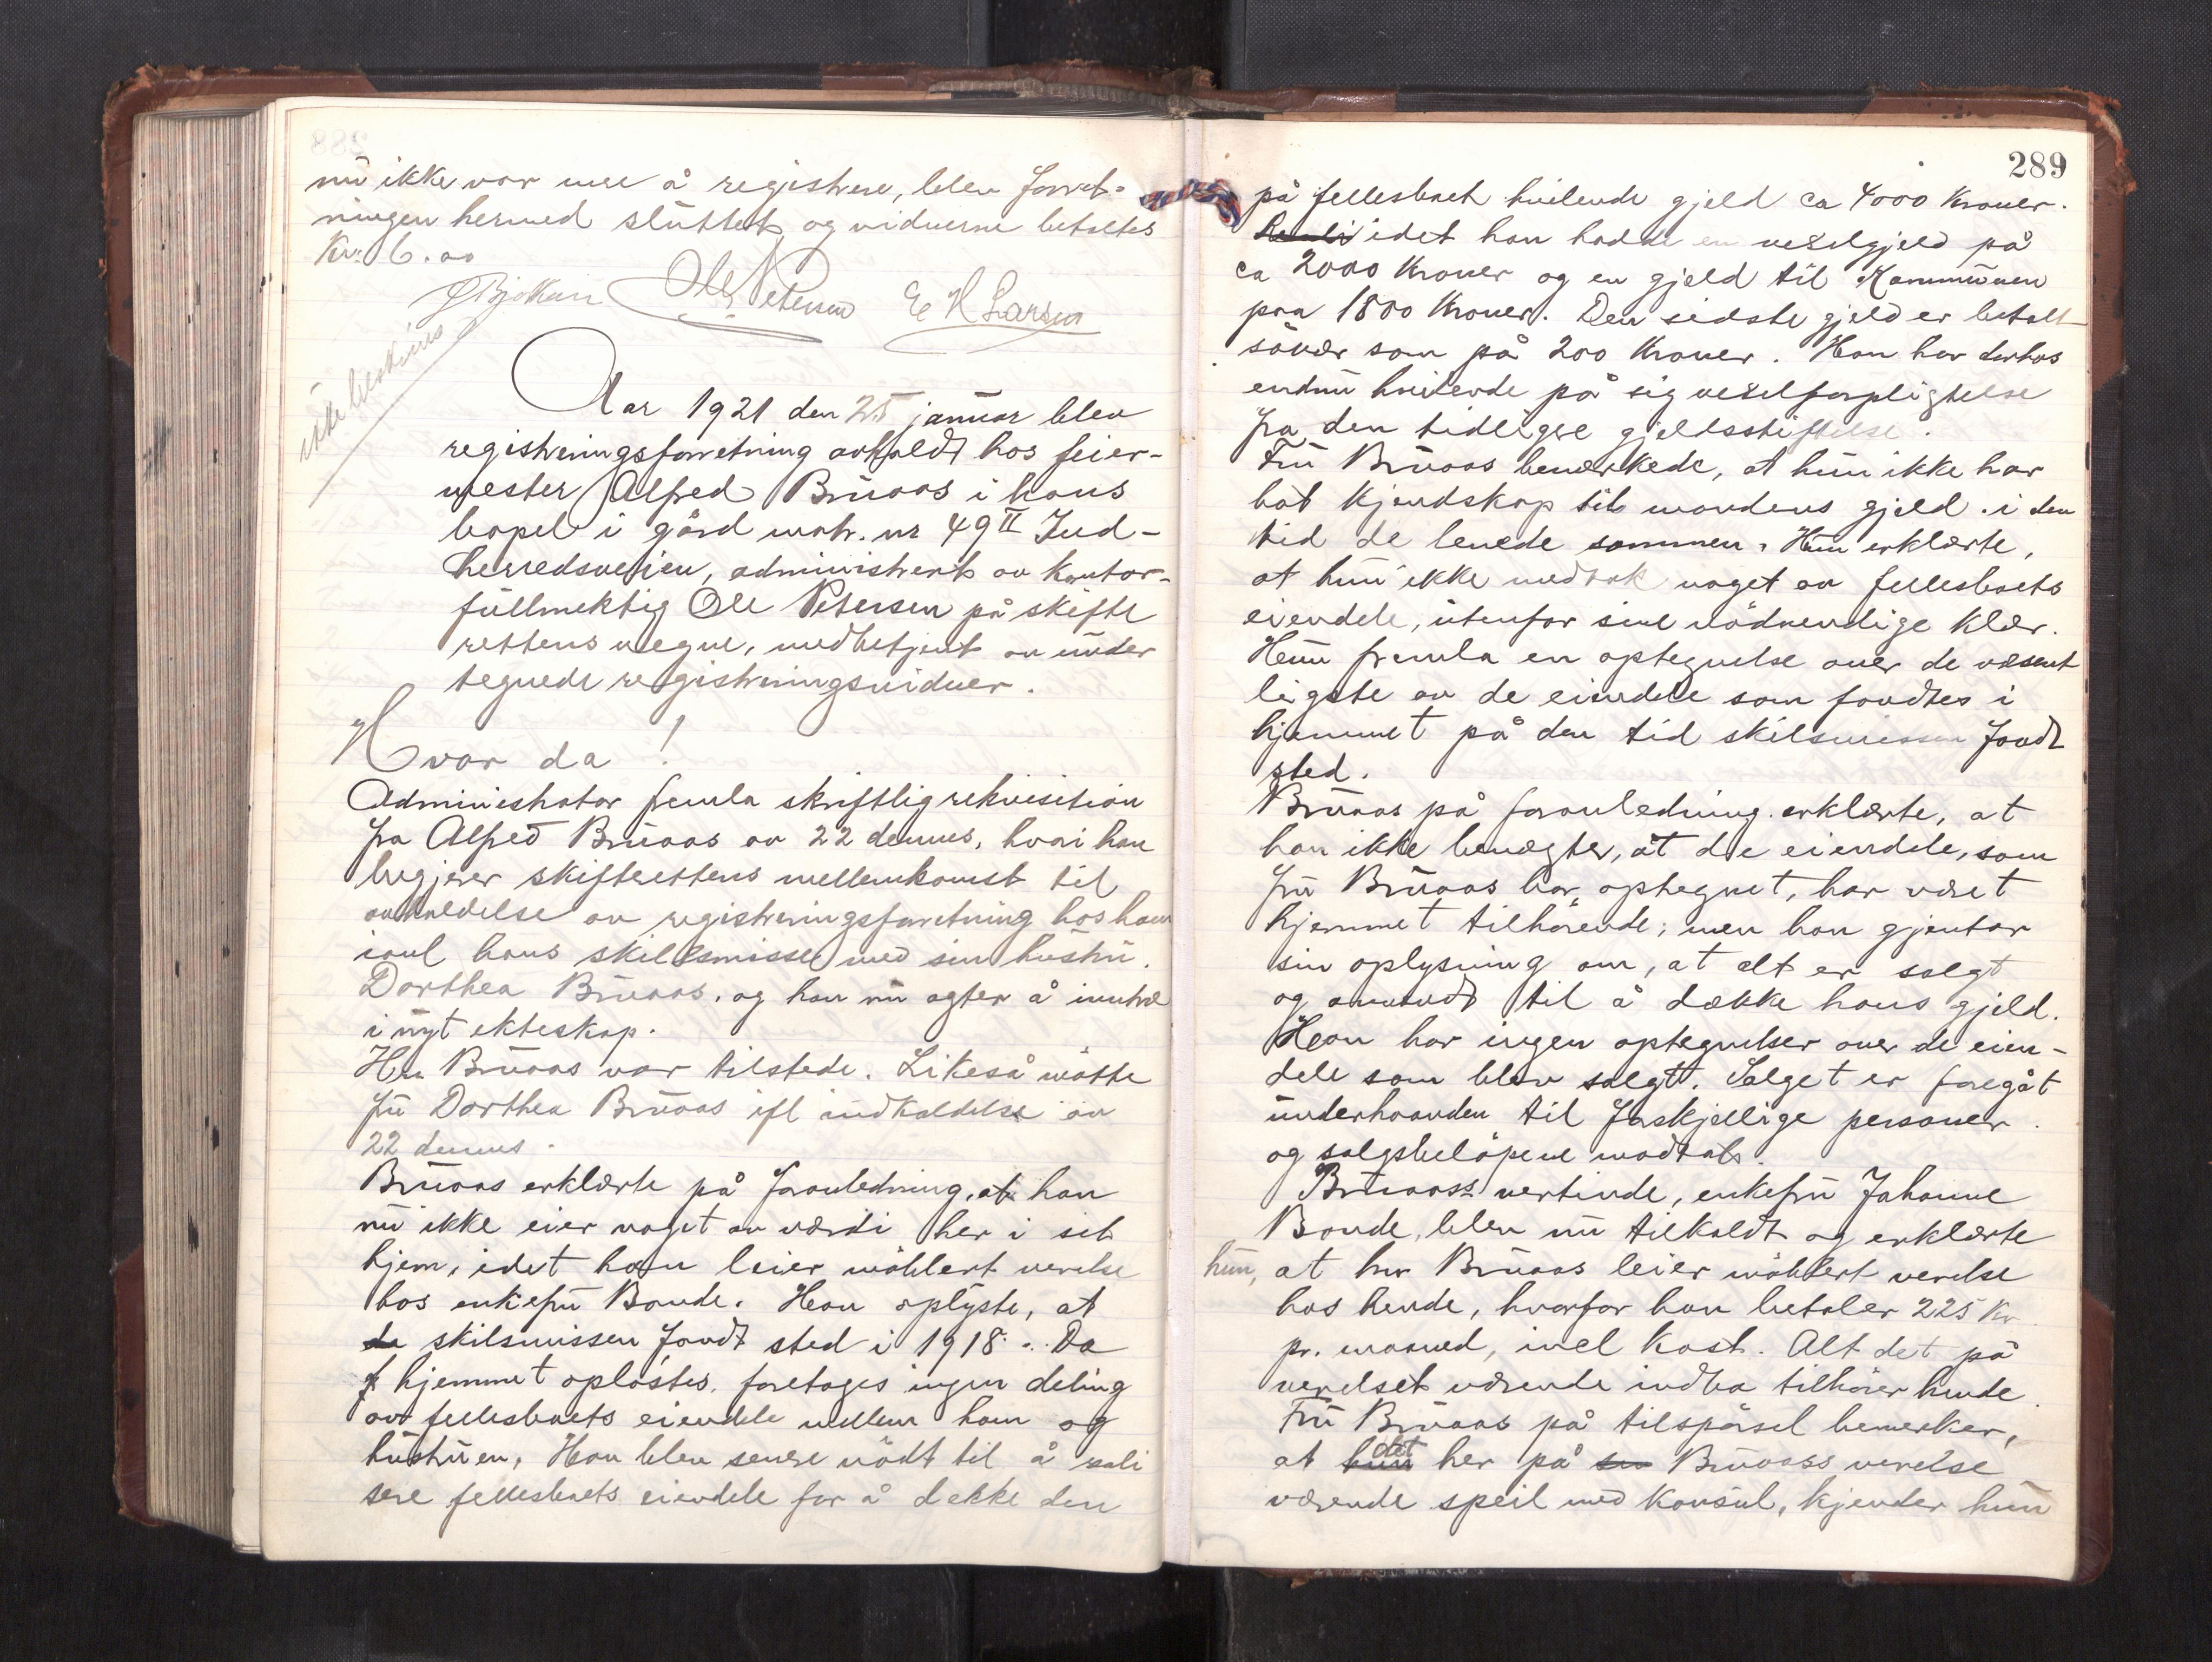 nu ikke var mere å registrere, blev forret-
ningen hermed sluttet og vidnerne betaltes
Kr. 6.00
Ole Petersen E H Larsen
ikke beskrives
Aar 1921 den 25 januar blev
registreringsforretning avholdt hos feier-
mester Alfred Bruaas i hans
bopel i gård matr. nr 49 II Ind-
herredsveien, administrert av kontor-
fullmektig Ole Petersen på skifte
rettens vegne, medbetjent av under
tegnede registreringsvidner.
Hvor da!
Administrator fremla skriftlig rekvisition
fra Alfred Bruaas av 22 dennes, hvori han
begjerer skifterettens mellemkomst til
avholdelse av registreringsforretning hos ham
ianl hans skillsmisse med sin hustru.
Dorthea Bruaas. og han nu agter å inntræ
i nyt ekteskap.
Hr. Bruaas var tilstede. Likeså møtte
fru Dorthea Bruaas ifl indkaldelse av
22 dennes.
Bruaas erklærte på foranledning, at han
nu ikke eier noget av værdi her i sit
hjem, idet han leier møblert verelse
hos enkefru Bonde. Han oplyste, at
da skilsmissen fandt sted i 1918. Da
f hjemmet opløstes, foretoges ingen deling
av fellesboets eiendele mellem ham og
hustruen. Han blev senere nødt til å reali
sere fellesboets eiendele for å dekke den
289
på fellesboet hvilende gjeld ca 4000 kroner.
idet han hadde en vexelgjeld på
ca 2000 kroner og en gjeld til Kommunen
paa 1800 kroner. Den sidste gjeld er betalt
såvær som på 200 kroner. Han har derhos
endnu hvilende på sig vexelforpligtelse
fra den tidligere gjeldsstiftelse.
Fru Bruaas bemærkede, at hun ikke har
hat kjendskap til mandens gjeld i den
tid de levede sammen. Hun erklærte,
at hun ikke medtok noget av fellesboets
eiendele, utenfor sine nødvendige klær.
Hun fremla en optegnelse over de væsent
ligste av de eiendele som fandtes i
hjemmet på den tid skilsmissen fandt
sted.
Bruaas på foranledning erklærte, at
han ikke benægter, at de eiendele, som
fru Bruaas har optegnet, har været
hjemmet tilhørende; men han gjentar
sin oplysning om, at alt er solgt
og anvendt til å dække hans gjeld.
Han har ingen optegnelser over de eien-
dele som blev solgt. Salget er foregåt
underhaanden til forskjellige personer
og salgsbeløpene modtat.
Bruaass vertinde, enkefru Johanne
Bonde, blev nu tilkaldt og erklærte
hun, at hr Bruaas leier møblert verelse
hos hende, hvorfor han betaler 225 Kr
pr. maaned, incl kost. Alt det på
verelset værende indbo tilhører hende
Fru Bruaas på tilspørsel bemerker,
at hun det her på sin Bruaass verelse
værende speil med konsul, kjender hun